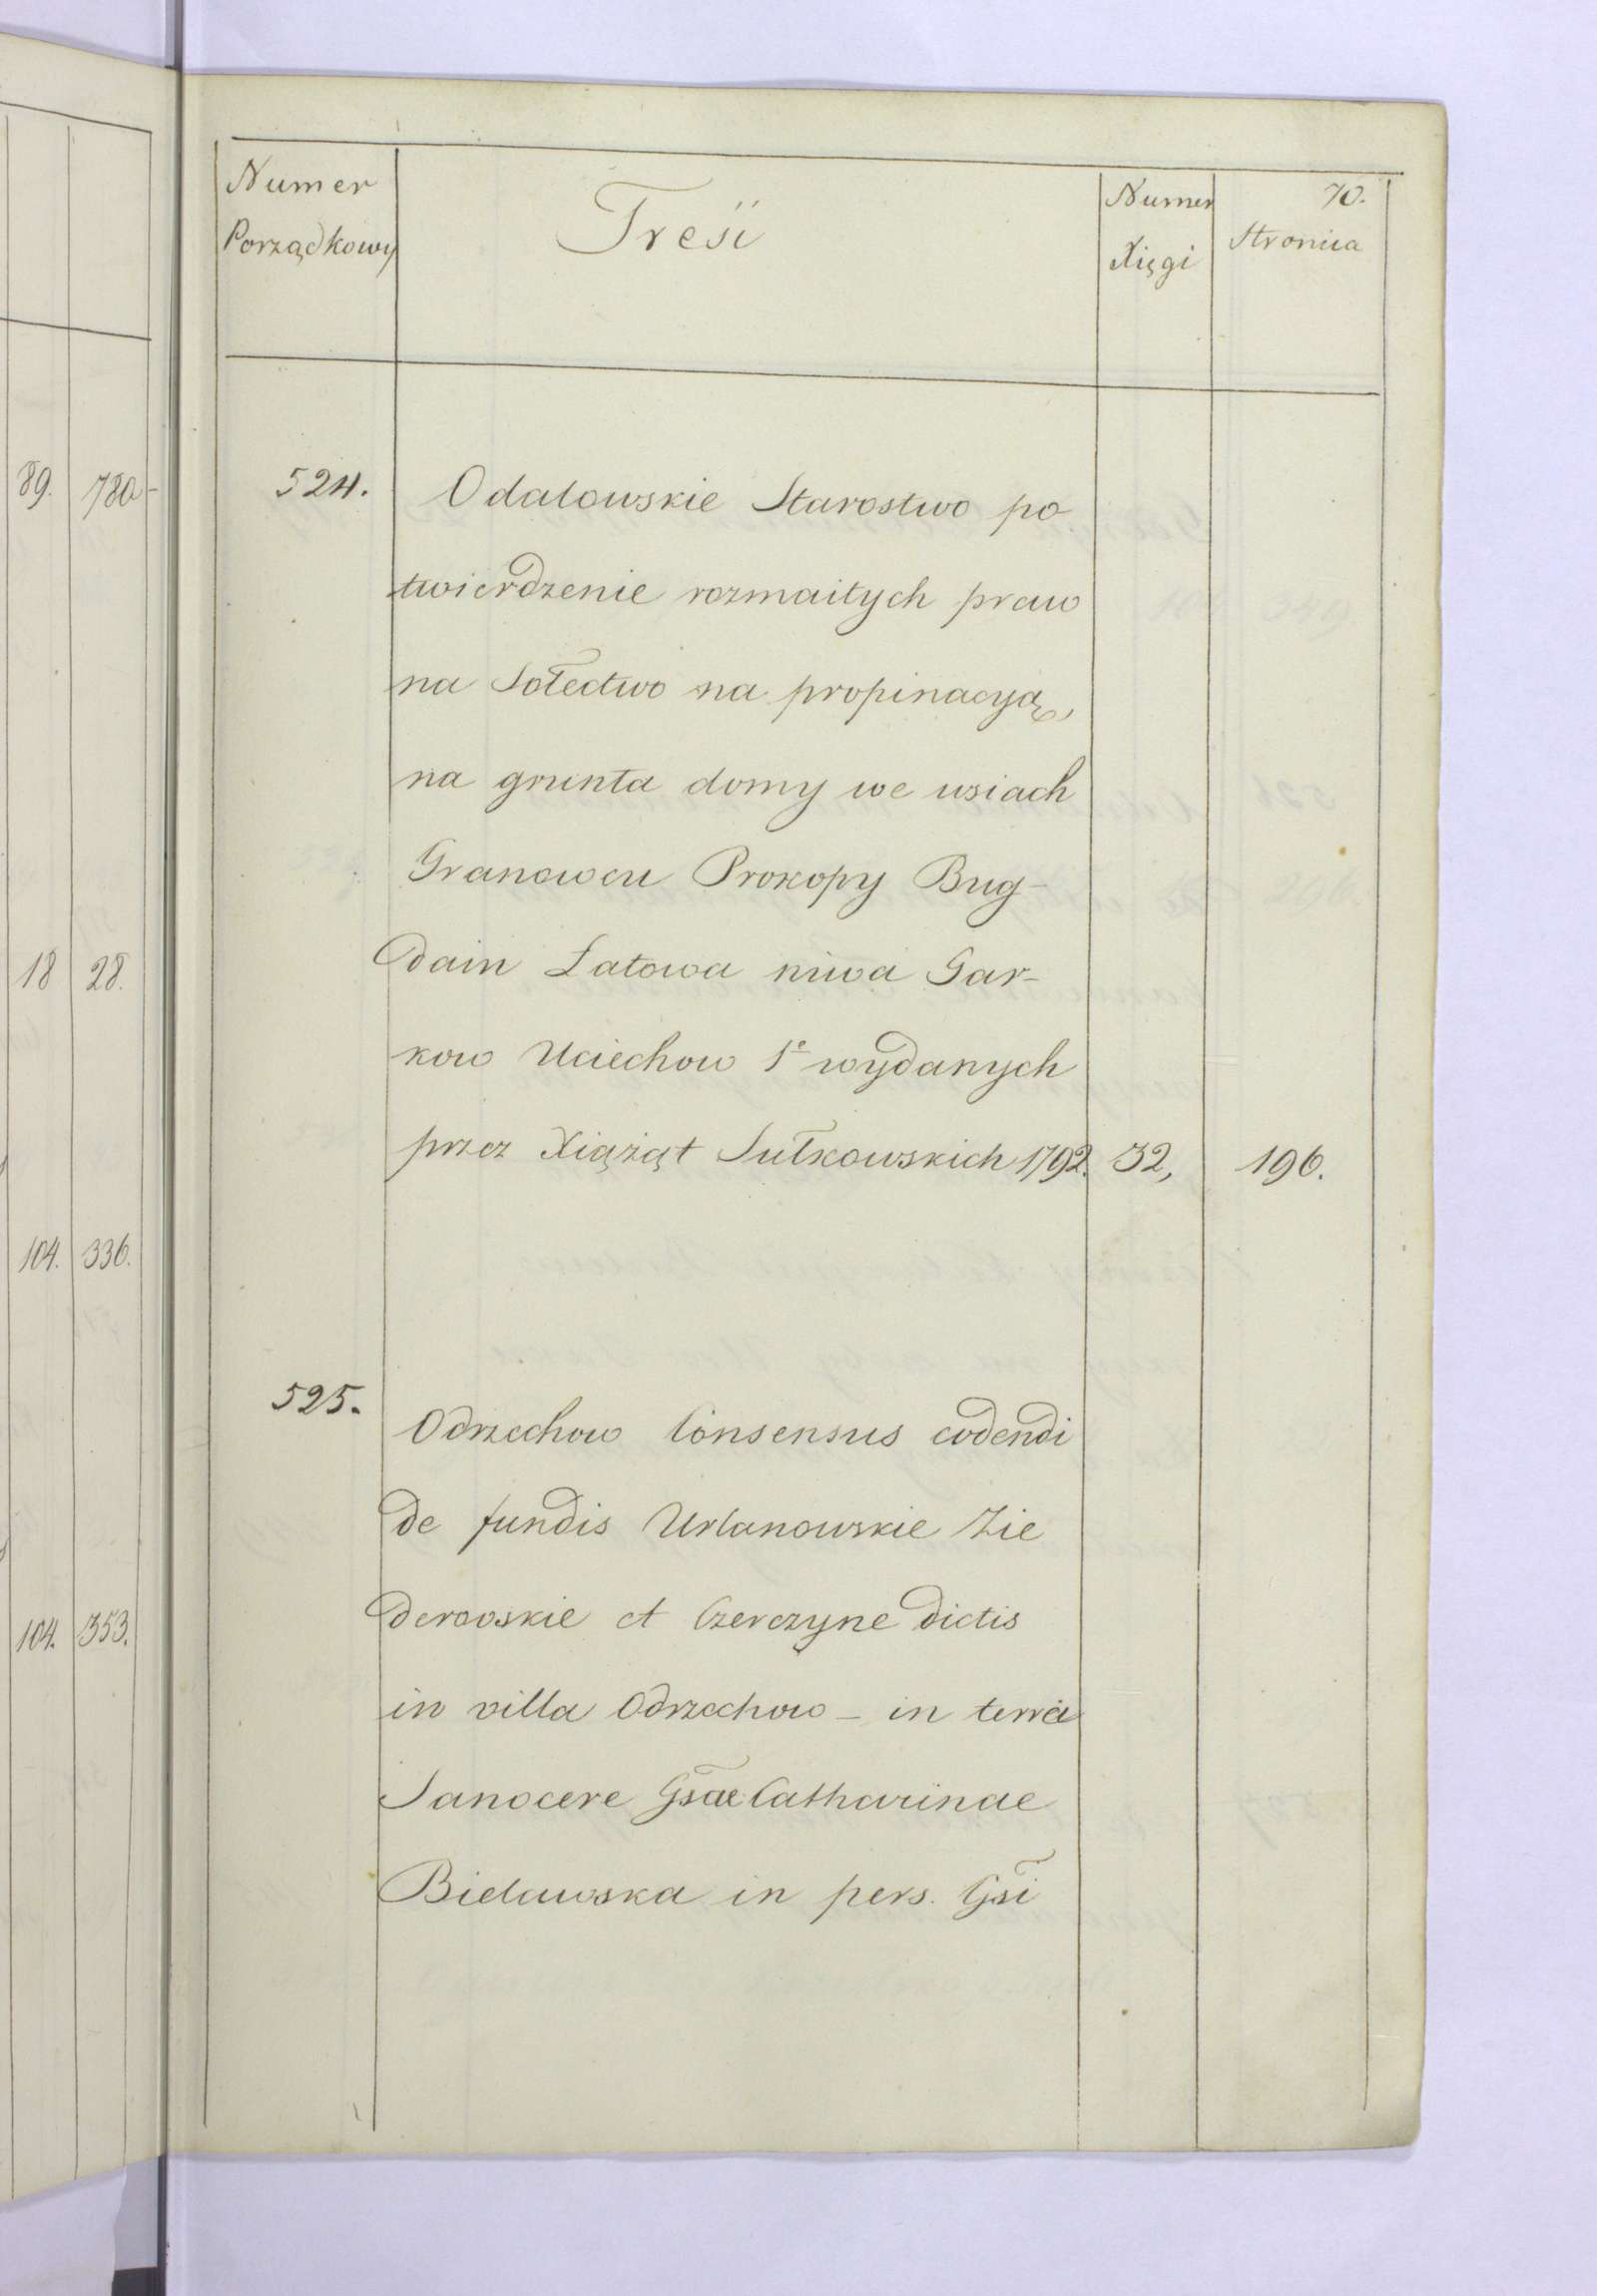 Numer Porządkowy
Treść
Numer Xięgi
70.
Stronica
89. 780-
18 28.
104. 336.
104. 353.
524. Odalowskie Starostwo po
twierdzenie rozmaitych praw
na Sołectwo na propinacyą,
na grunta domy we wsiach
Granowcu Prokopy Bug-
dain Łatowa niwa Gar-
kow Uciechow 1e wydanych
przez Xiążąt Sułkowskich 1792. 32, 196.
525. Odrzechow Consensus cedendi
de fundis Urlanowskie Zie
derowskie et Czerczyne dictis
in villa Odrzechow - in terra
Sanocere Gsae Catharinae
Bielawska in pers. Gsi